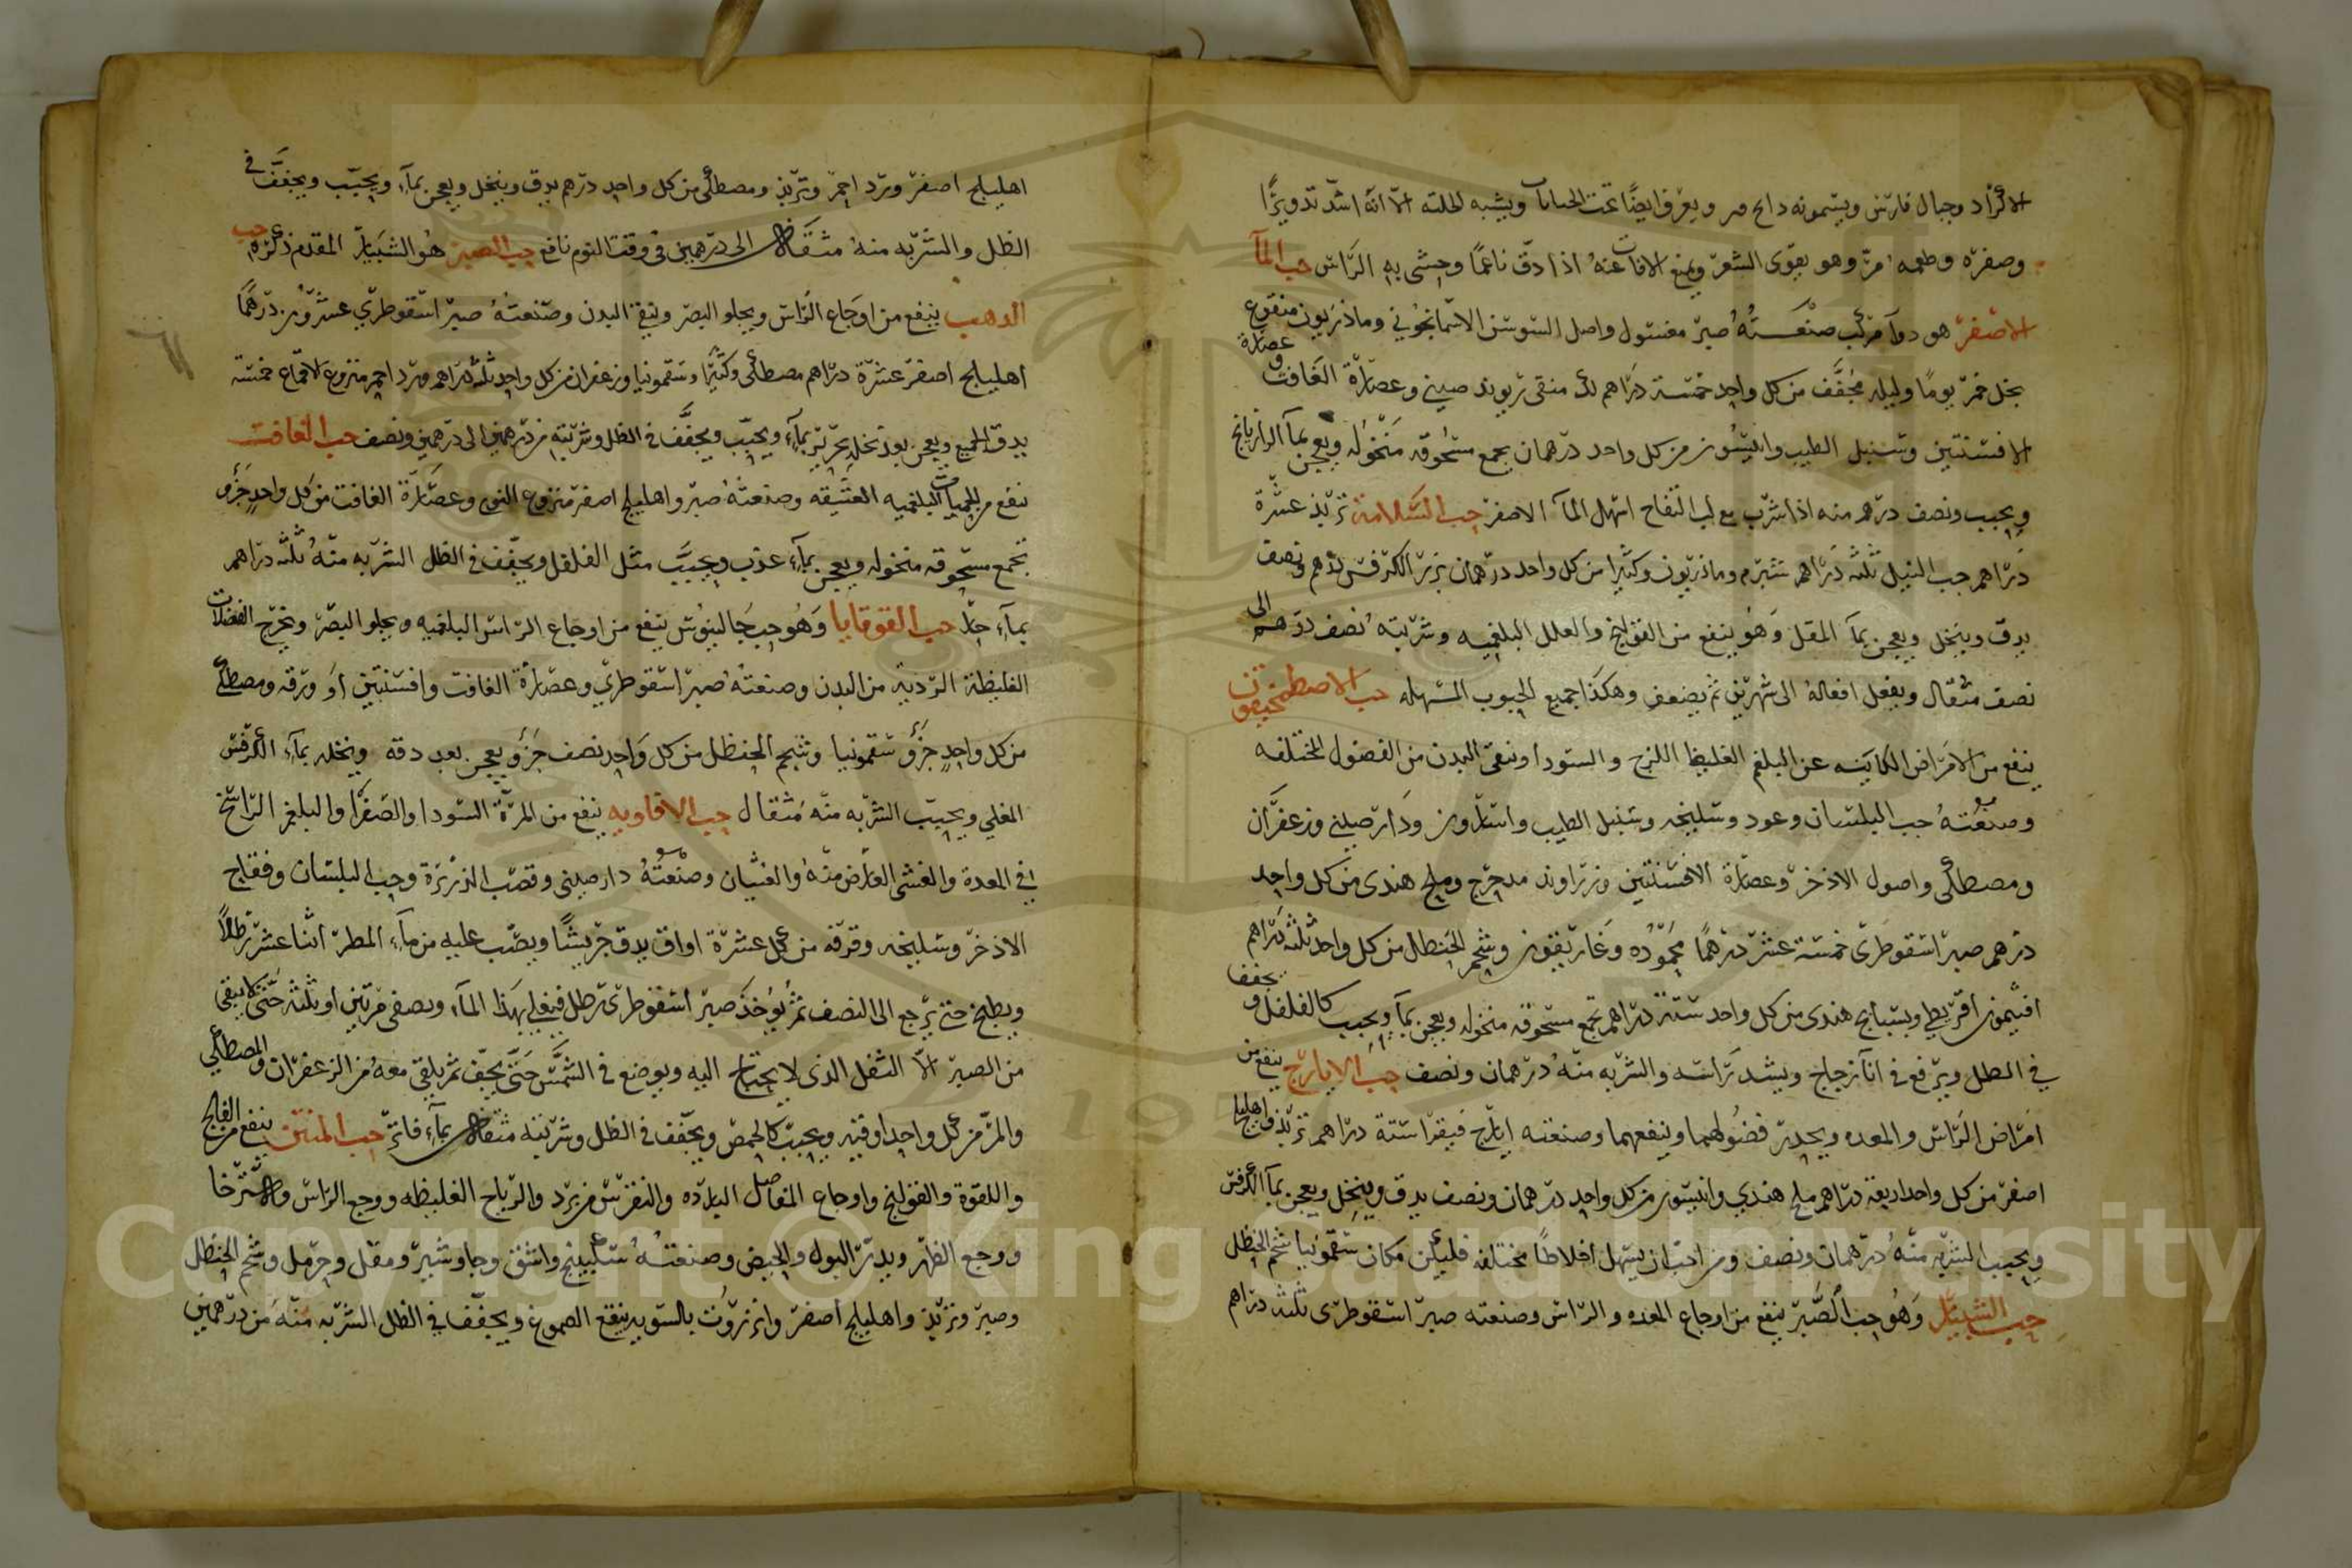 الاكراد وجبال فارس ويسمونه ويعرف ايضًا تحت ويشبه الحلبه الا انه اشد تدويرًا
وصفره وطعمه مر وهو يقوى الشعر ويمنع الافات عنه اذا دق ناعمًا وحشى به الراس حب المآ
الاصفر هو دوآ مركب صنعته صبر مغسول واصل السوسن الاسمانجوني وماذريون منقوع
بخل خمر يومًا وليله مجفف من كل واحد خمسة دراهم لك منقى ريوند صيني وعصارة الغافت وعصارة
الافسنتين وسنبل الطيب وانيسون من كل واحد درهمان يجمع مسحوقه منخوله ويعجن بمآ الرازيانج
ويحبب ونصف درهم منه اذا شرب مع لب التفاح اسهل المآ الاصفر حب السلامة تربذ عشرة
دراهم حب النيل ثلثه دراهم شبرم وماذريون وكثيرا من كل واحد درهمان بزر الكرفس درهم ونصف
يدق وينخل ويعجن بمآ المقل وهو ينفع من القولنج والعلل البلغميه وشربته نصف درهم الى
نصف مثقال ويفعل افعاله الى شهرين ثم يضعف وهكذا جميع الحبوب المسهله حب الاصطمخيقون
ينفع من الامراض الكاينه عن البلغم الغليظ اللزج والسودا وينقى البدن من الفضول المختلفه
وصنعته حب البلسان وعود وسليخه وسنبل الطيب واسارون ودارصيني وزعفران
ومصطكى واصول الاذخر وعصارة الافسنتين وزراوند مدحرج وملح هندى من كل واحد
درهم صبر اسقوطرى خمسة عشر درهمًا محموده وغاريقون وشحم الحنظل من كل واحد ثلثه دراهم
افتيمون اقريطي وبسبايج هندى من كل واحد ستة دراهم تجمع مسحوقه منخوله ويعجن بمآ ويحبب كالفلفل ويجفف
في الظل ويرفع في انآ زجاج ويشد راسه والشربه منه درهمان ونصف حب الايارج ينفع من
امراض الراس والمعده ويحدر فضولهما وينفعهما وصنعته ايارج فيقرا ستة دراهم تربذ واهليلج
اصفر من كل واحد اربعة دراهم ملح هندي وانيسون من كل واحد درهمان ونصف يدق وينخل ويعجن بمآ الكرفس
ويحبب الشربه منه درهمان ونصف ومن احب ان يسهل اخلاطًا مختلفه فليكن مكان سقمونيا شحم الحنظل
حب الشبيار وهو حب الصبر ينفع من اوجاع المعده والراس وصنعته صبر اسقوطرى ثلثه دراهم
اهليلج اصفر ورد احمر وتربذ ومصطكى من كل واحد درهم يدق وينخل ويعجن بمآء ويحبب ويجفف في
الظل والشربه منه مثقال الى درهمين في وقت النوم نافع حب الصبر هو الشبيار المقدم ذكره حب
الذهب ينفع من اوجاع الراس ويجلو البصر وينقى البدن وصنعته صبر اسقوطري عشرون درهمًا
اهليلج اصفر عشرة دراهم مصطكى وكثيرا وسقمونيا وزعفران من كل واحد ثلثه دراهم ورد احمر منزوع الاقماع خمسة
يدق الجميع ويعجن بعد نخله بحرير بمآء ويحبب ويجفف في الظل وشربته من درهمين الى درهمين ونصف حب الغافت
ينفع من الحميات البلغميه العتيقه وصنعته صبر واهليلج اصفر منزوع النوى وعصارة الغافت من كل واحد جزو
تجمع مسحوقه منخوله ويعجن بمآء عذب ويحبب مثل الفلفل ويجفف في الظل الشربه منه ثلثه دراهم
بمآء حار حب القوقايا وهو حب جالينوس ينفع من اوجاع الراس البلغميه ويجلو البصر ويخرج الفضلات
الغليظة الردية من البدن وصنعته صبر اسقوطري وعصارة الغافت وافسنتين او ورقه ومصطكى
من كل واحد جزو سقمونيا وشحم الحنظل من كل واحد نصف جزو يعجن بعد دقه ونخله بمآء الكرفس
المغلي ويحبب الشربه منه مثقال حب الافاويه ينفع من المرة السودا والصفرا والبلغم الراسخ
في المعدة والغشى العارض منه والغثيان وصنعته دارصيني وقصب الذريرة وحب البلسان وفقاح
الاذخر وسليخه وقرفه من كل عشرة اواق يدق جريشًا ويصب عليه من مآء المطر اثنا عشر رطلًا
ويطبخ حتى يرجع الى النصف ثم يوخذ صبر اسقوطرى رطل فيغلى بهذا المآء ويصفى مرتين او ثلثه حتى لا يبقى
من الصبر الا الثفل الذى لا يحتاج اليه ويوضع في الشمس حتى يجف ثم يلقى معه من الزعفران والمصطكى
والمر من كل واحد اوقيه ويحبب كالحمص ويجفف في الظل وشربته مثقال بمآء فاتر حب المنتن ينفع من الفالج
واللقوة والقولنج واوجاع المفاصل البارده والنقرس من برد والرياح الغليظه ووجع الراس والاسترخا
ووجع الظهر ويدر البول والحيض وصنعته سكبينج واشق وجاوشير ومقل وحرمل وشحم الحنظل
وصبر وتربذ واهليلج اصفر وانزروت بالسويه ينقع الصموغ ويجفف في الظل الشربه منه من درهمين
Copyright © King Saud University